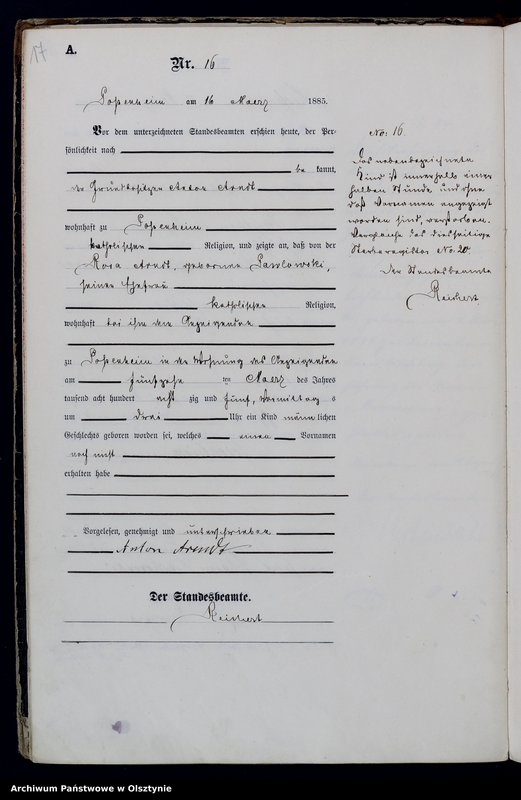 17
A.
Nr. 16
am 16 Maerz 1885.
Vor dem unterzeichneten Standesbeamten erschien heute, der Per-
sönlichkeit nach
be kannt,
der Grundbesitzer Anton Arndt
wohnhaft zu
katholischer Religion, und zeigte an, daß von der
Rosa Arndt, geborene Pawlowski,
seiner Ehefrau
katholischer Religion,
wohnhaft bei ihm dem Anzeigenden
zu in der Wohnung des Anzeigenden
am fünfzehn ten Maerz des Jahres
tausend acht hundert acht zig und fünf, Vormittag s
um drei Uhr ein Kind männ lichen
Geschlechts geboren worden sei, welches einen Vornamen
noch nicht
erhalten habe
Vorgelesen, genehmigt und unterschrieben
Anton Arendt
Der Standesbeamte.
Reichert
No: 16.
Das nebenbezeichnete
Kind ist innerhalb einer
halben Stunde und ohne
daß Vornamen angezeigt
worden sind, verstorben.
Vergleiche das diesseitige
Sterberegister No. 20.
Der Standesbeamte
Reichert
Archiwum Państwowe w Olsztynie